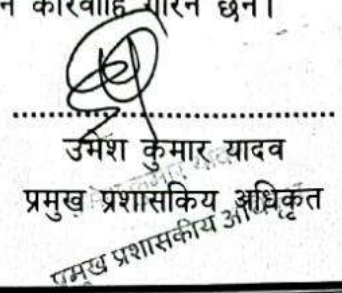 न कारवाहि गरिने छन।
उमेश कुमार यादव
प्रमुख प्रशासकिय अधिकृत
प्रमुख प्रशासकीय